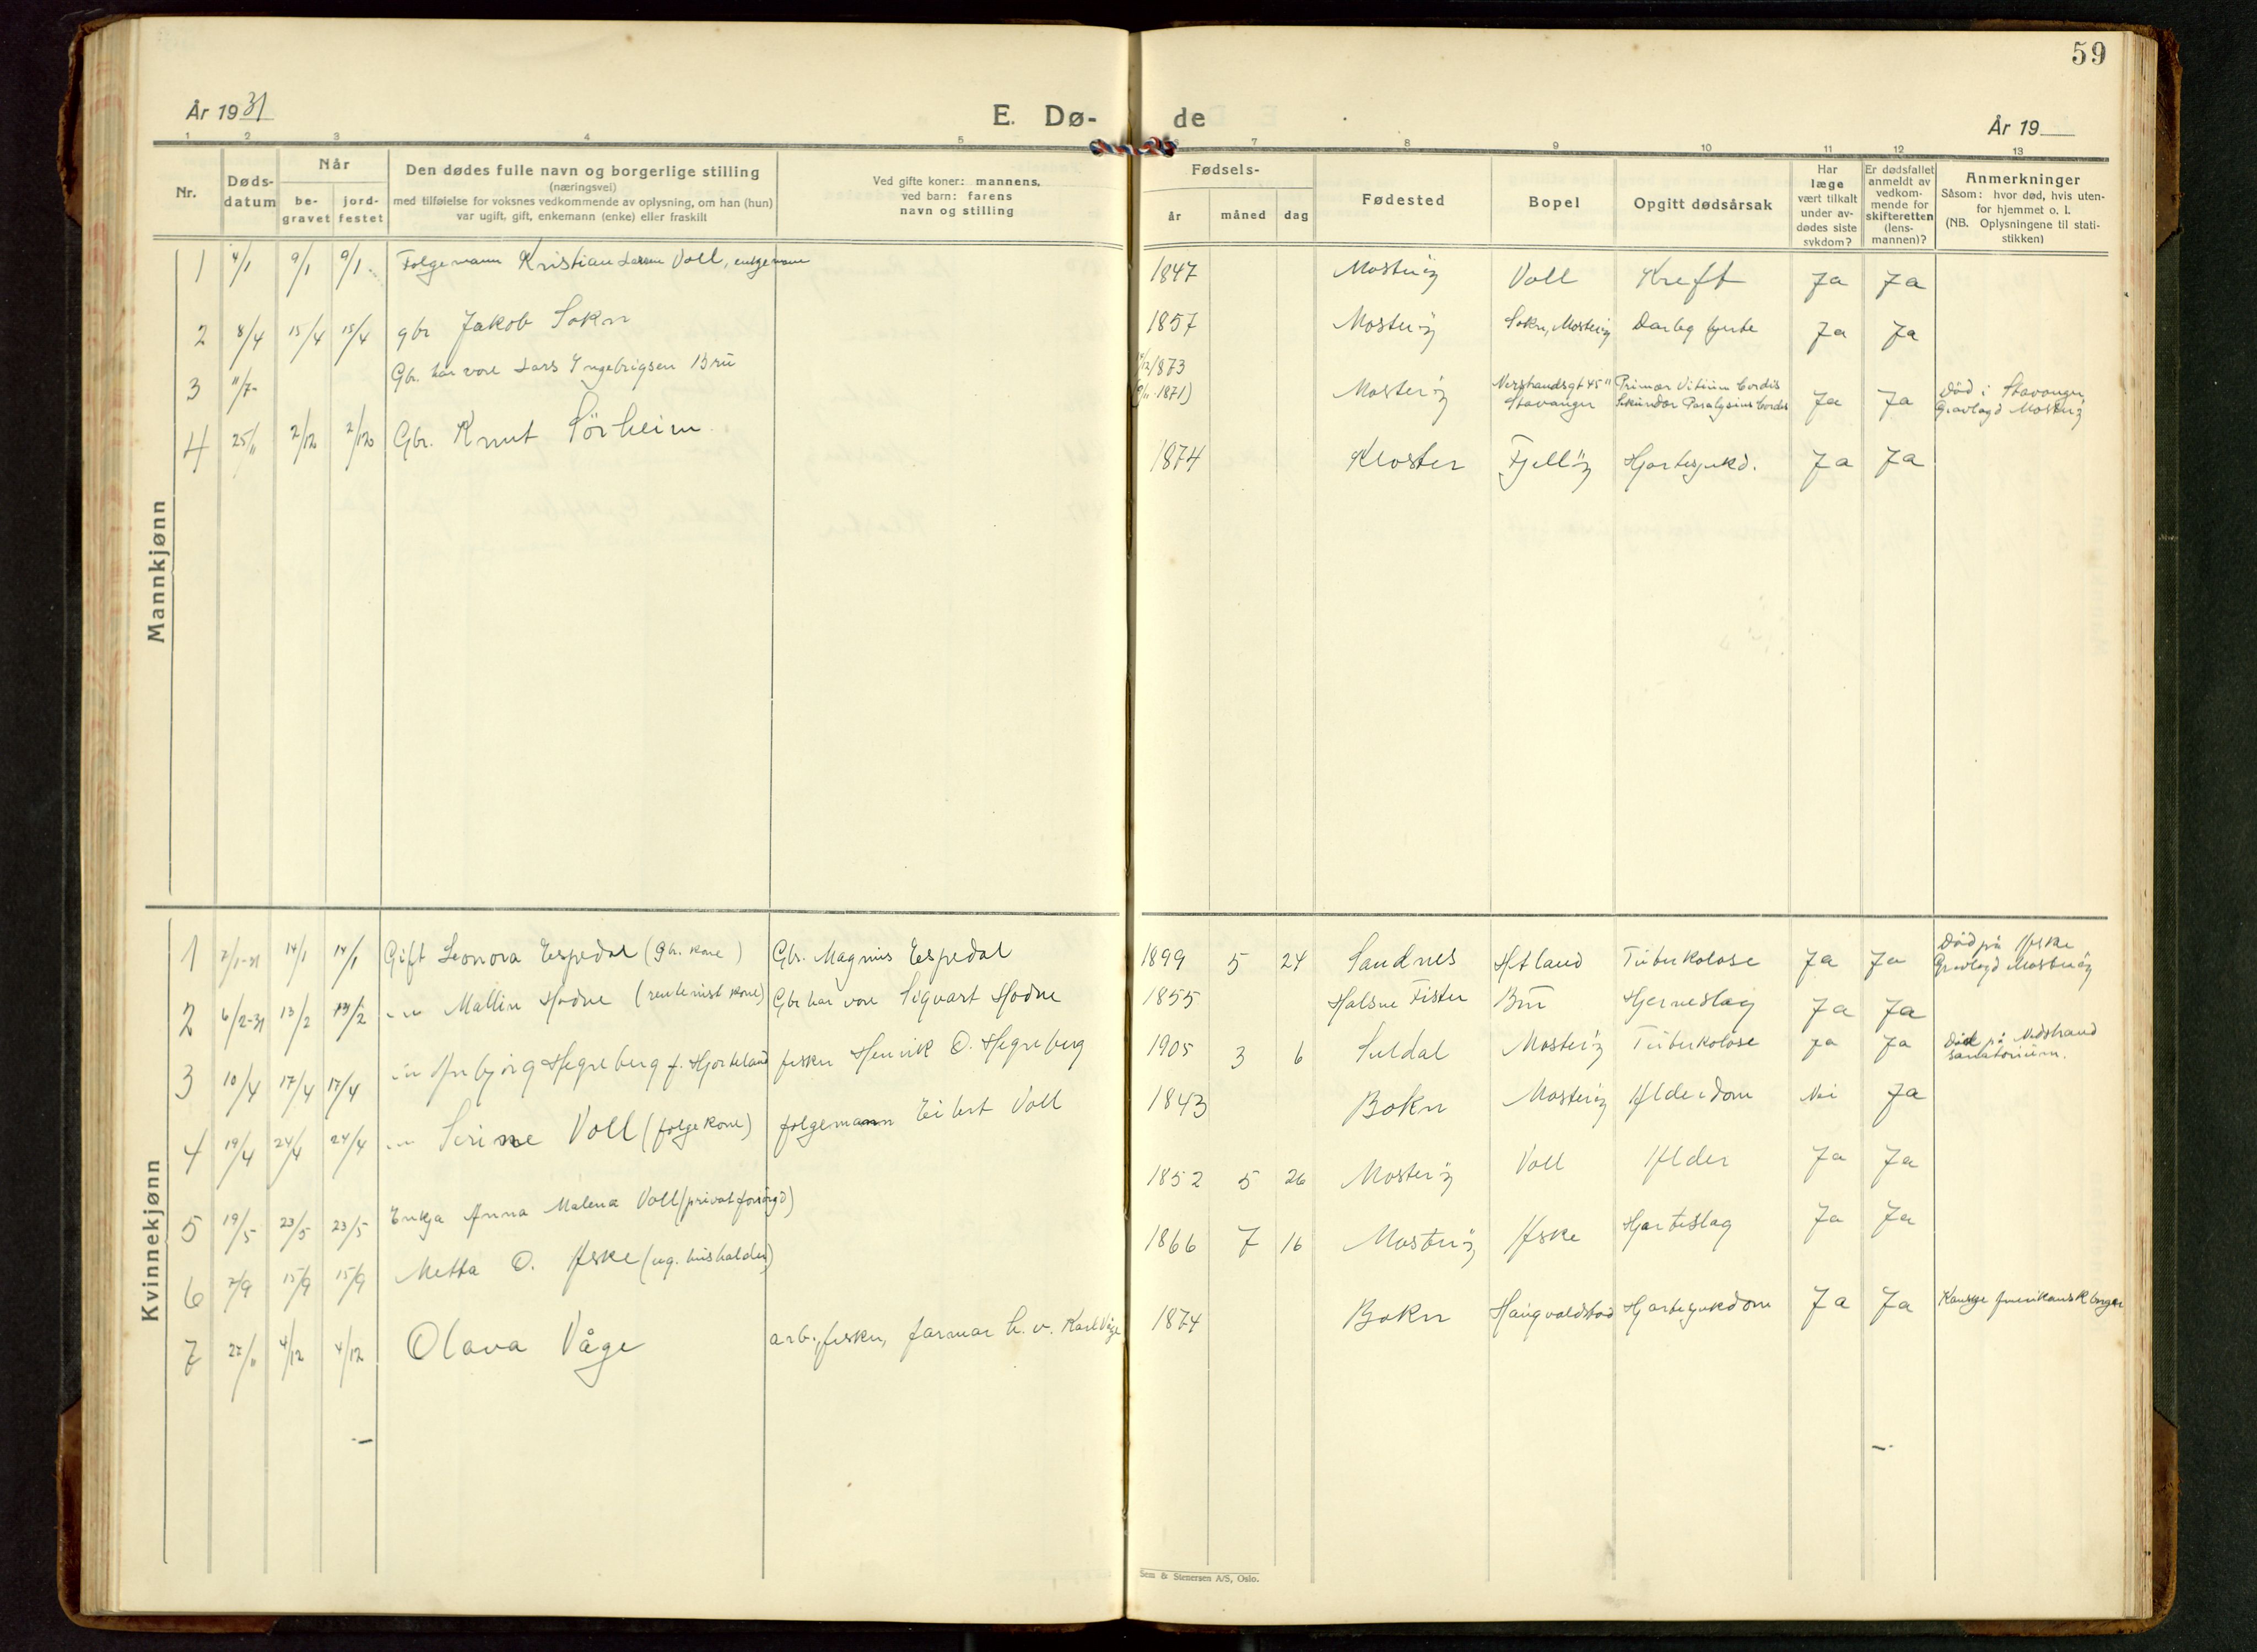 59
År 1931
E. Dø-
de
År 19
1 2 3 4 5 6 7 8 9 10 11 12 13
Nr.
Døds-
datum
Når
be-
gravet
jord-
festet
Den dødes fulle navn og borgerlige stilling
(næringsvei)
med tilføielse for voksnes vedkommende av oplysning, om han (hun)
var ugift, gift, enkemann (enke) eller fraskilt
Ved gifte koner: mannens,
ved barn: farens
navn og stilling
Fødsels-
år
måned
dag
Fødested
Bopel
Opgitt dødsårsak
Har
læge
vært tilkalt
under av-
dødes siste
sykdom?
Er dødsfallet
anmeldt av
vedkom-
mende for
skifteretten
(lens-
mannen)?
Anmerkninger
Såsom: hvor død, hvis uten-
for hjemmet o. l.
(NB. Oplysningene til stati-
stikken)
Mannkjønn
1 4/1 9/1 9/1 Folgemann Kristian Larsen Voll, enkjemann 1847 Mosterøy Voll Kreft Ja Ja
2 8/4 15/4 15/4 gbr Jakob Sokn 1857 Mosterøy Sokn, Mosterøy Darleg hjerte Ja Ja
3 11/7- Gbr. har vore Lars Yngebrigsen Bru /1873
1871) Mosterøy Nershandsgt 45 II
Stavanger Primær Vitium Cordis
Sekundær Paralysins Cordis Ja Ja Død i Stavanger
Gravlagd Mosterøy
4 25/11 2/12 2/12 Gbr. Knut Sørheim. 1874 Kloster Fjelløy Hjartesjukd. Ja Ja
Kvinnekjønn
1 7/1-31 14/1 14/1 Gift Leonora Espedal (gbr. kone) Gbr. Magnus Espedal 1899 5 24 Sandnes Hatland Tuberkolose Ja Ja Død på Aske
Gravlagd Mosterøy
2 6/2-31 13/2 13/2 -"- Mallin Hodne (rentenist kone) Gbr har vore Sigvart Hodne 1855 Halsne Fister Bru Hjerneslag Ja Ja
3 10/4 17/4 17/4 -"- Anbjørg Hegreberg f. Hjorteland fisker Henrik O. Hegreberg 1905 3 6 Suldal Mosterøy Tuberkolose Ja Ja Død på Nedstrand
sanatorium.
4 19/4 24/4 24/4 -"- Serinne Voll (folgekone) folgemann Eilert Voll 1843 Bokn Mosterøy Alderdom Nei Ja
5 19/5 23/5 23/5 Enkja Anna Malena Voll (privat forsørgd) 1852 5 26 Mosterøy Voll Alder Ja Ja
6 7/9 15/9 15/9 Metta O. Aske (ug. husholder) 1866 7 16 Mosterøy Aske Hjarteslag Ja Ja
7 27/11 4/12 4/12 Olava Våge arb., fisker, farmar h. v. Karl Våge 1874 Bokn Haugvaldstad Hjartesjukdom Ja Ja Kanskje Amerikansk borgar
Sem & Stenersen A/S, Oslo.